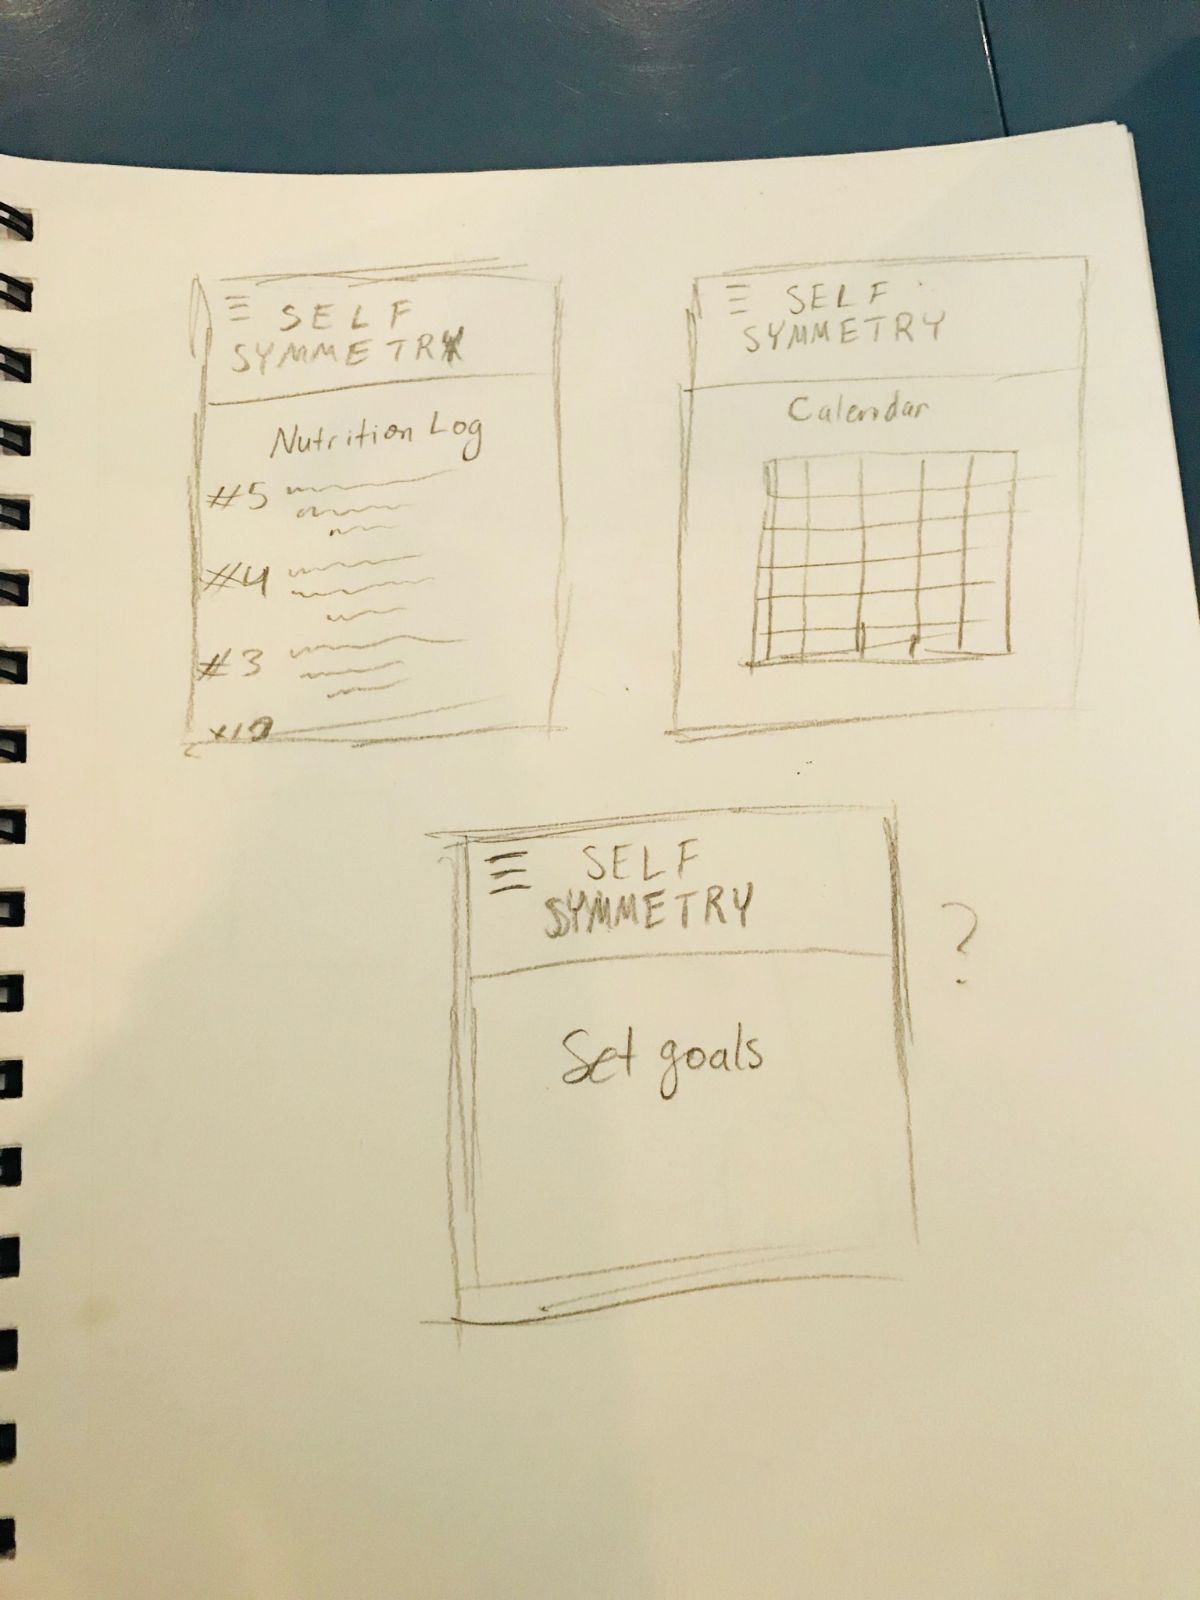 SELF
SYMMETRY
Nutrition Log
#5
#4
#3
SELF
SYMMETRY
Calendar
SELF
SYMMETRY
?
Set goals